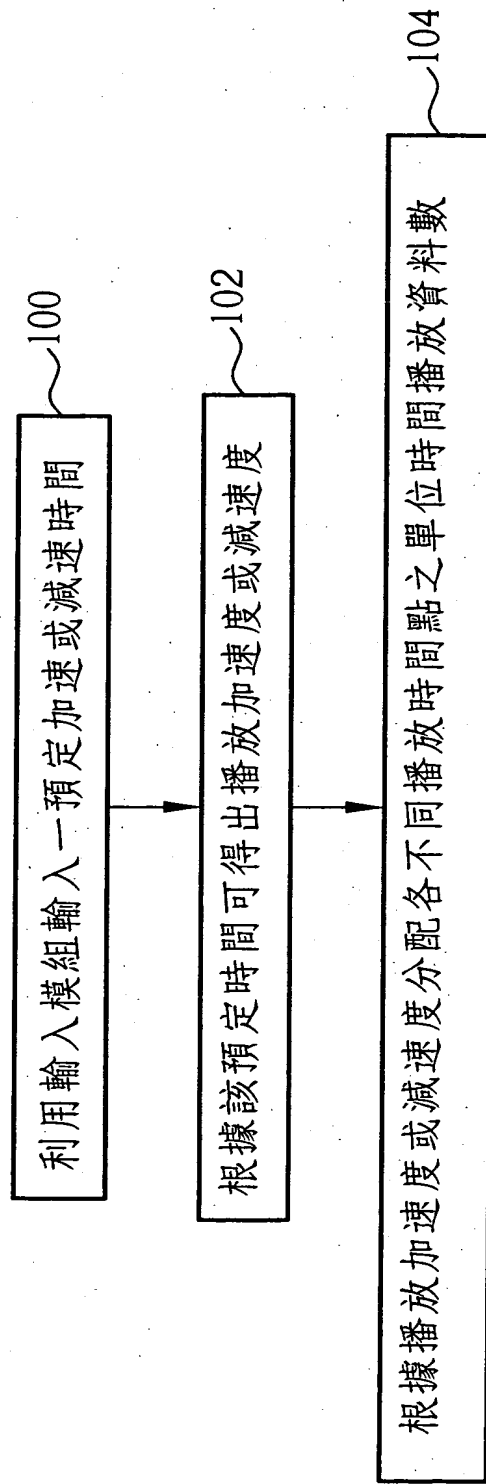 利用輸入模組輸入一預定加速或減速時間
100
根據該預定時間可得出播放加速度或減速度
102
根據播放加速度或減速度分配各不同播放時間點之單位時間播放資料數
104